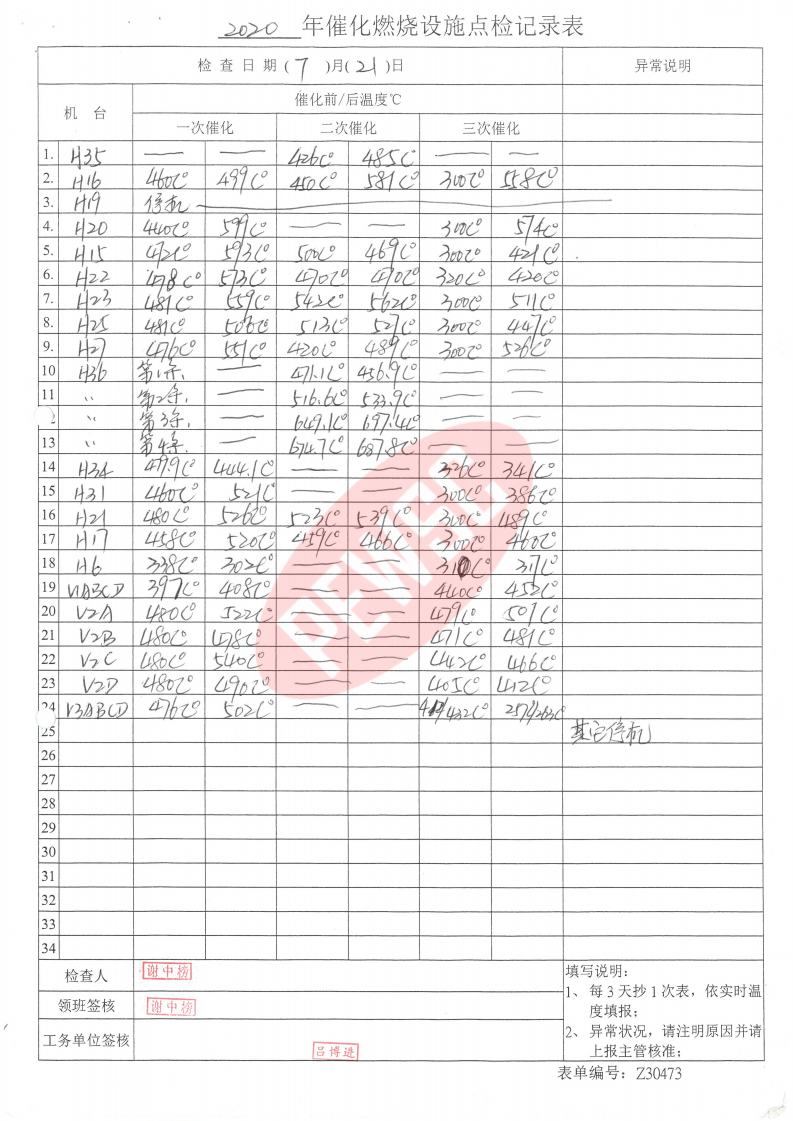 2020 年催化燃烧设施点检记录表
检 查 日 期 ( 7 )月( 21 )日 异常说明
机 台 催化前/后温度℃
一次催化 二次催化 三次催化
1. H35 — — 426C° 485C° — —
2. H16 460C° 499C° 450C° 581C° 300C° 558C°
3. H19 停机
4. H20 440C° 599C° — — 300C° 574C°
5. H15 472C° 593C° 500C° 469C° 300C° 421C°
6. H22 478C° 573C° 470C° 470C° 320C° 420C°
7. H23 481C° 559C° 542C° 562C° 300C° 511C°
8. H25 481C° 506C° 513C° 527C° 300C° 447C°
9. H27 476C° 551C° 420C° 489C° 300C° 526C°
10 H36 第1条, — 471.1C° 456.9C° — —
11 〃 第2条, — 516.6C° 533.9C° — —
〃 第3条, — 649.1C° 697.4C° — —
13 〃 第4条, — 674.7C° 687.8C° — —
14 H34 479.9C° 444.1C° — — 326C° 341C°
15 H31 460C° 521C° — — 300C° 386C°
16 H21 480C° 526C° 523C° 539C° 300C° 489C°
17 H17 458C° 520C° 459C° 466C° 300C° 460C°
18 H6 338C° 302C° — — 310C° 317C°
19 V1ABCD 397C° 408C° — — 440C° 452C°
20 V2A 480C° 522C° — — 479C° 507C°
21 V2B 480C° 478C° — — 471C° 481C°
22 V2C 480C° 540C° — — 442C° 466C°
23 V2D 480C° 490C° — — 405C° 412C°
24 V3ABCD 476C° 502C° /432C° 257/263C°
25 其它停机
26
27
28
29
30
31
32
33
34
PEWSC
检查人 谢中榜
领班签核 谢中榜
工务单位签核 吕博进
填写说明:
1、每3天抄1次表，依实时温
度填报;
2、异常状况，请注明原因并请
上报主管核准;
表单编号：Z30473